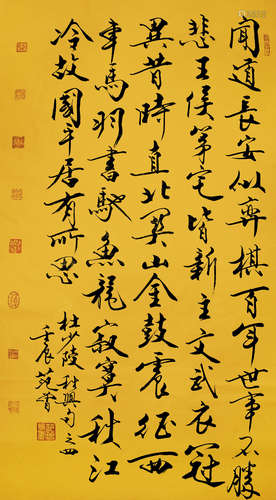 聞道長安似弈棋百年世事不勝
悲王侯第宅皆新主文武衣冠
異昔時直北關山金鼓震征西
車馬羽書馳魚龍寂寞秋江
冷故國平居有所思
杜少陵秋興句之四
壬辰